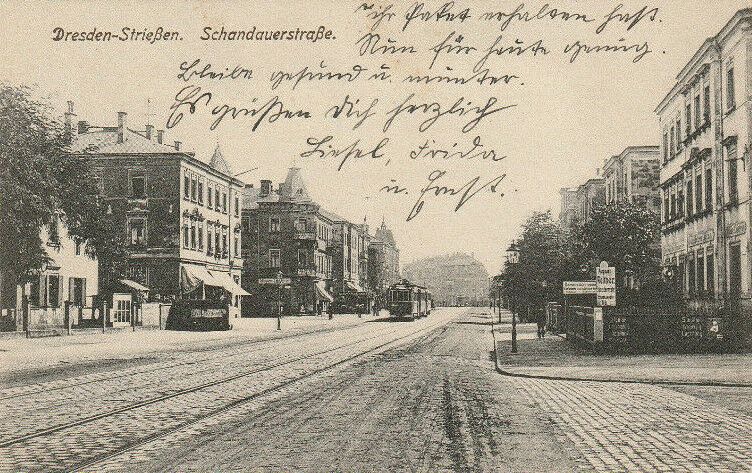 Dresden-Strießen. Schandauerstraße.
ihr Paket erhalten hast.
Nun für heute genug.
Bleibe gesund u. munter.
Es grüßen Dich herzlich
Liesel, Frida
u. Ernst.